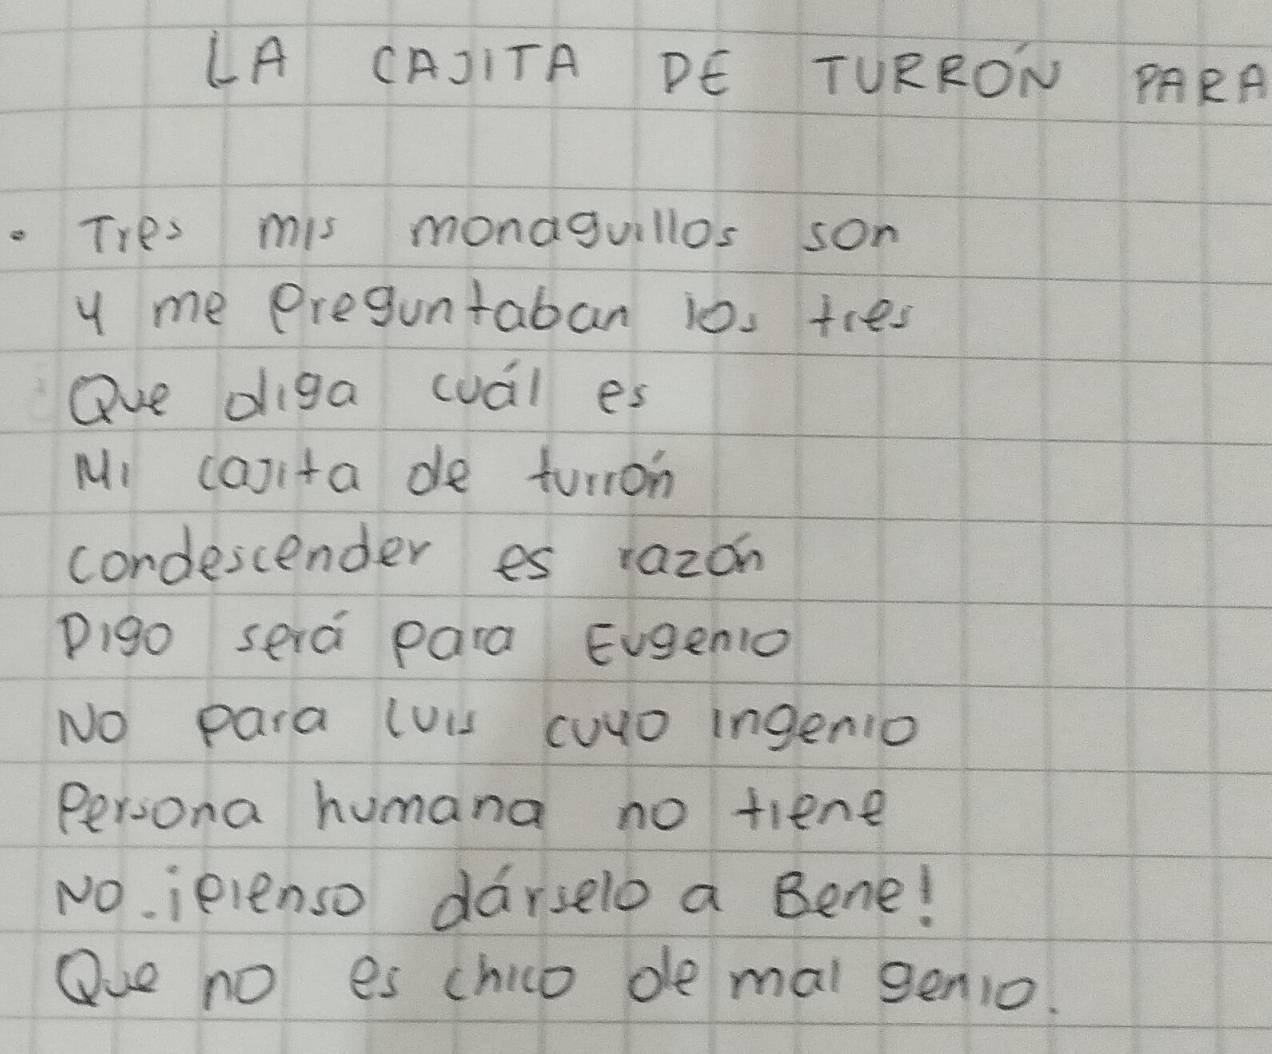 LA CAJITA DE TURRÓN PARA
• Tres mis monaguillos son
y me preguntaban los tres
Que diga cuál es
Mi cajita de turrón
condescender es razón
Digo será para Eugenio
No para Luis cuyo ingenio
Persona humana no tiene
No. ¡pienso dárselo a Bene!
Que no es chico de mal genio.